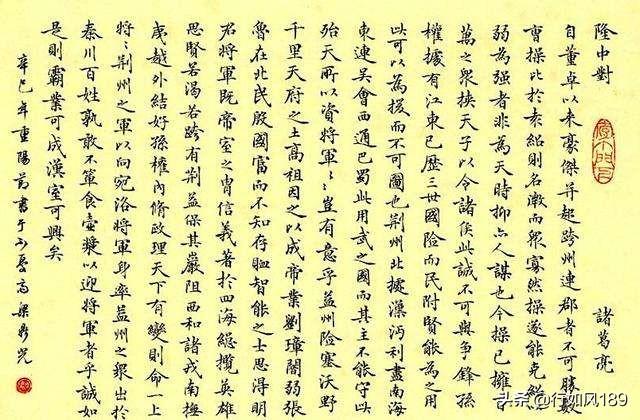 隆中對 諸葛亮
自董卓以來豪傑并起跨州連郡者不可勝
曹操比於袁紹則名微而眾寡然操遂能克紹
弱為強者非為天時抑亦人謀也今操已擁百
萬之眾挾天子以令諸侯此誠不可與争鋒孫
權據有江東已歷三世國險而民附賢能為之用
此可以為援而不可圖也荆州北據漢沔利盡南海
東連吴會西通巴蜀此用武之國而其主不能守此
殆天所以資將軍〻豈有意乎益州險塞沃野
千里天府之土高祖因之以成帝業劉璋闇弱張
魯在北民殷國富而不知存恤智能之士思得明
君將軍既帝室之胄信義著於四海總攬英雄
思賢若渴若跨有荆益保其巖阻西和諸戎南撫
夷越外結好孫權内脩政理天下有變則命一上
將〻荆州之軍以向宛洛將軍身率益州之眾出於
秦川百姓孰敢不簞食壺漿以迎將軍者乎誠如
是則霸業可成漢室可興矣
辛巳年重陽前書于
头条 @行如风189